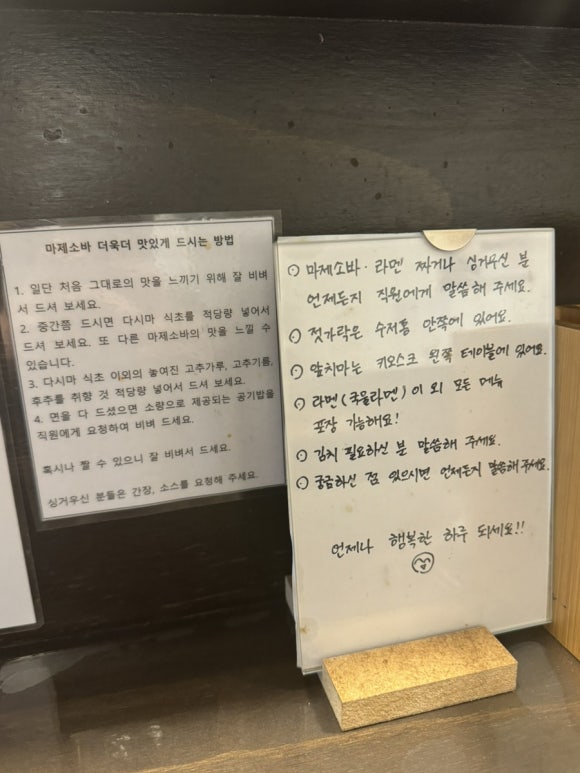 마제소바 더욱더 맛있게 드시는 방법
1. 일단 처음 그대로의 맛을 느끼기 위해 잘 비벼
서 드셔 보세요.
2. 중간쯤 드시면 다시마 식초를 적당량 넣어서
드셔 보세요. 또 다른 마제소바의 맛을 느낄 수
있습니다.
3. 다시마 식초 이외의 놓여진 고추가루, 고추기름,
후추를 취향 것 적당량 넣어서 드셔 보세요.
4. 면을 다 드셨으면 소량으로 제공되는 공기밥을
직원에게 요청하여 비벼 드세요.
혹시나 짤 수 있으니 잘 비벼서 드세요.
싱거우신 분들은 간장, 소스를 요청해 주세요.
마제소바 · 라멘 짜거나 싱거우신 분
언제든지 직원에게 말씀해 주세요.
젓가락은 수저통 안쪽에 있어요.
앞치마는 키오스크 왼쪽 테이블에 있어요.
라멘(국물라멘)이 외 모든 메뉴
포장 가능해요!
김치 필요하신 분 말씀해 주세요.
궁금하신 점 있으시면 언제든지 말씀해 주세요.
언제나 행복한 하루 되세요!!